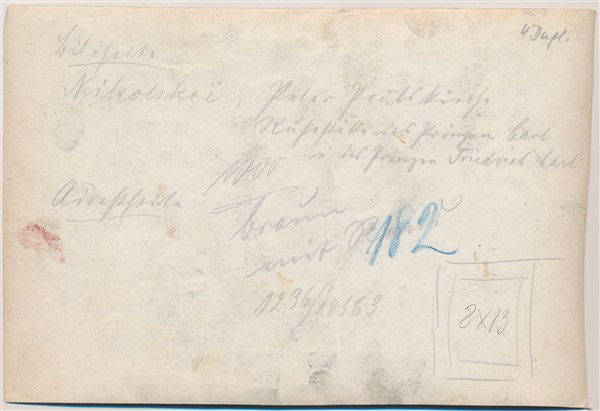 4 Dupl.
Bildseite
Nikolskoë, Peter Paulskirche
Ruhestätte des Prinzen Carl
u. des Prinzen Friedrich Carl
Adreßseite
braun
mit
182
8x13